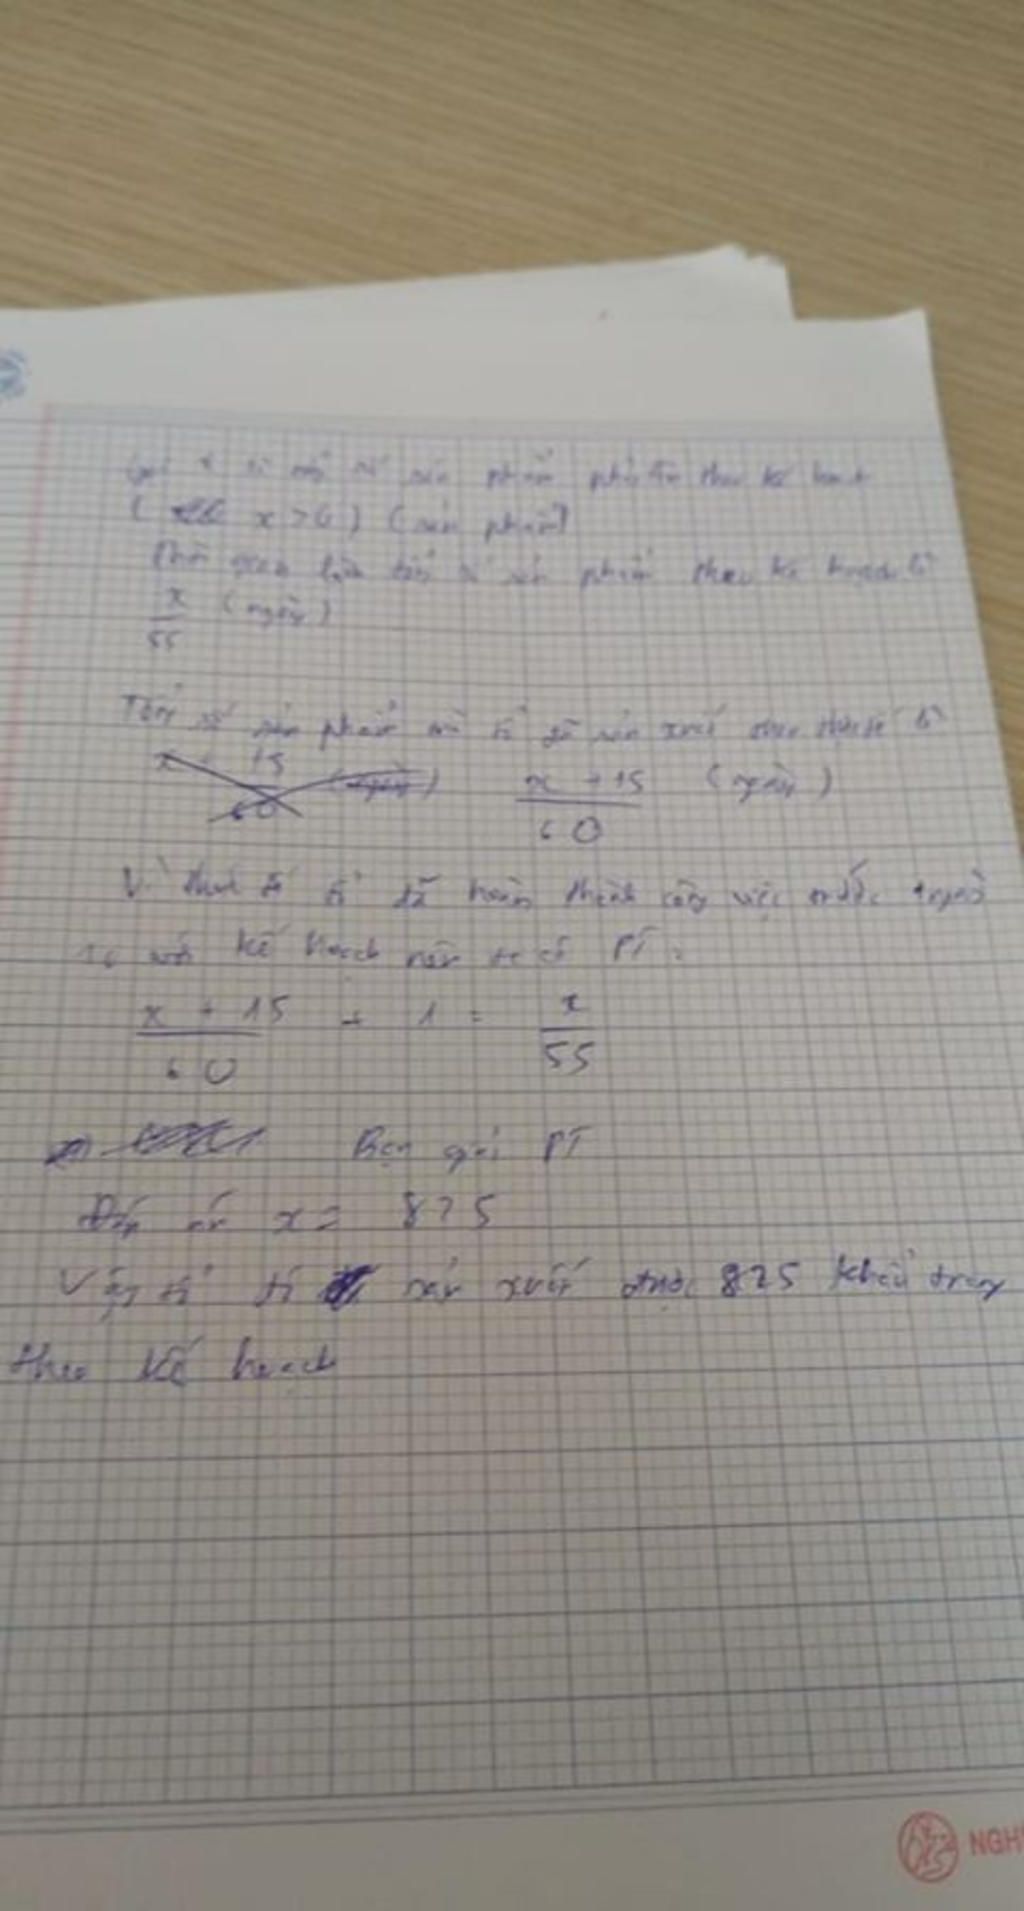 Gọi x là số sản phẩm phải làm theo kế hoạch
( x > 0 ) ( sản phẩm )
Thời gian tổ sản phẩm theo kế hoạch là
x/55 ( ngày )
Tổng số sản phẩm mà tổ đã sản xuất theo thực tế là
x + 15 / 60 ( ngày )
Vì thực tế tổ đã hoàn thành công việc trước 1 ngày
so với kế hoạch nên ta có PT :
x + 15 / 60 + 1 = x / 55
Bạn giải PT
Đáp án x = 825
Vậy tổ sản xuất được 825 khẩu trang
theo kế hoạch
NGH